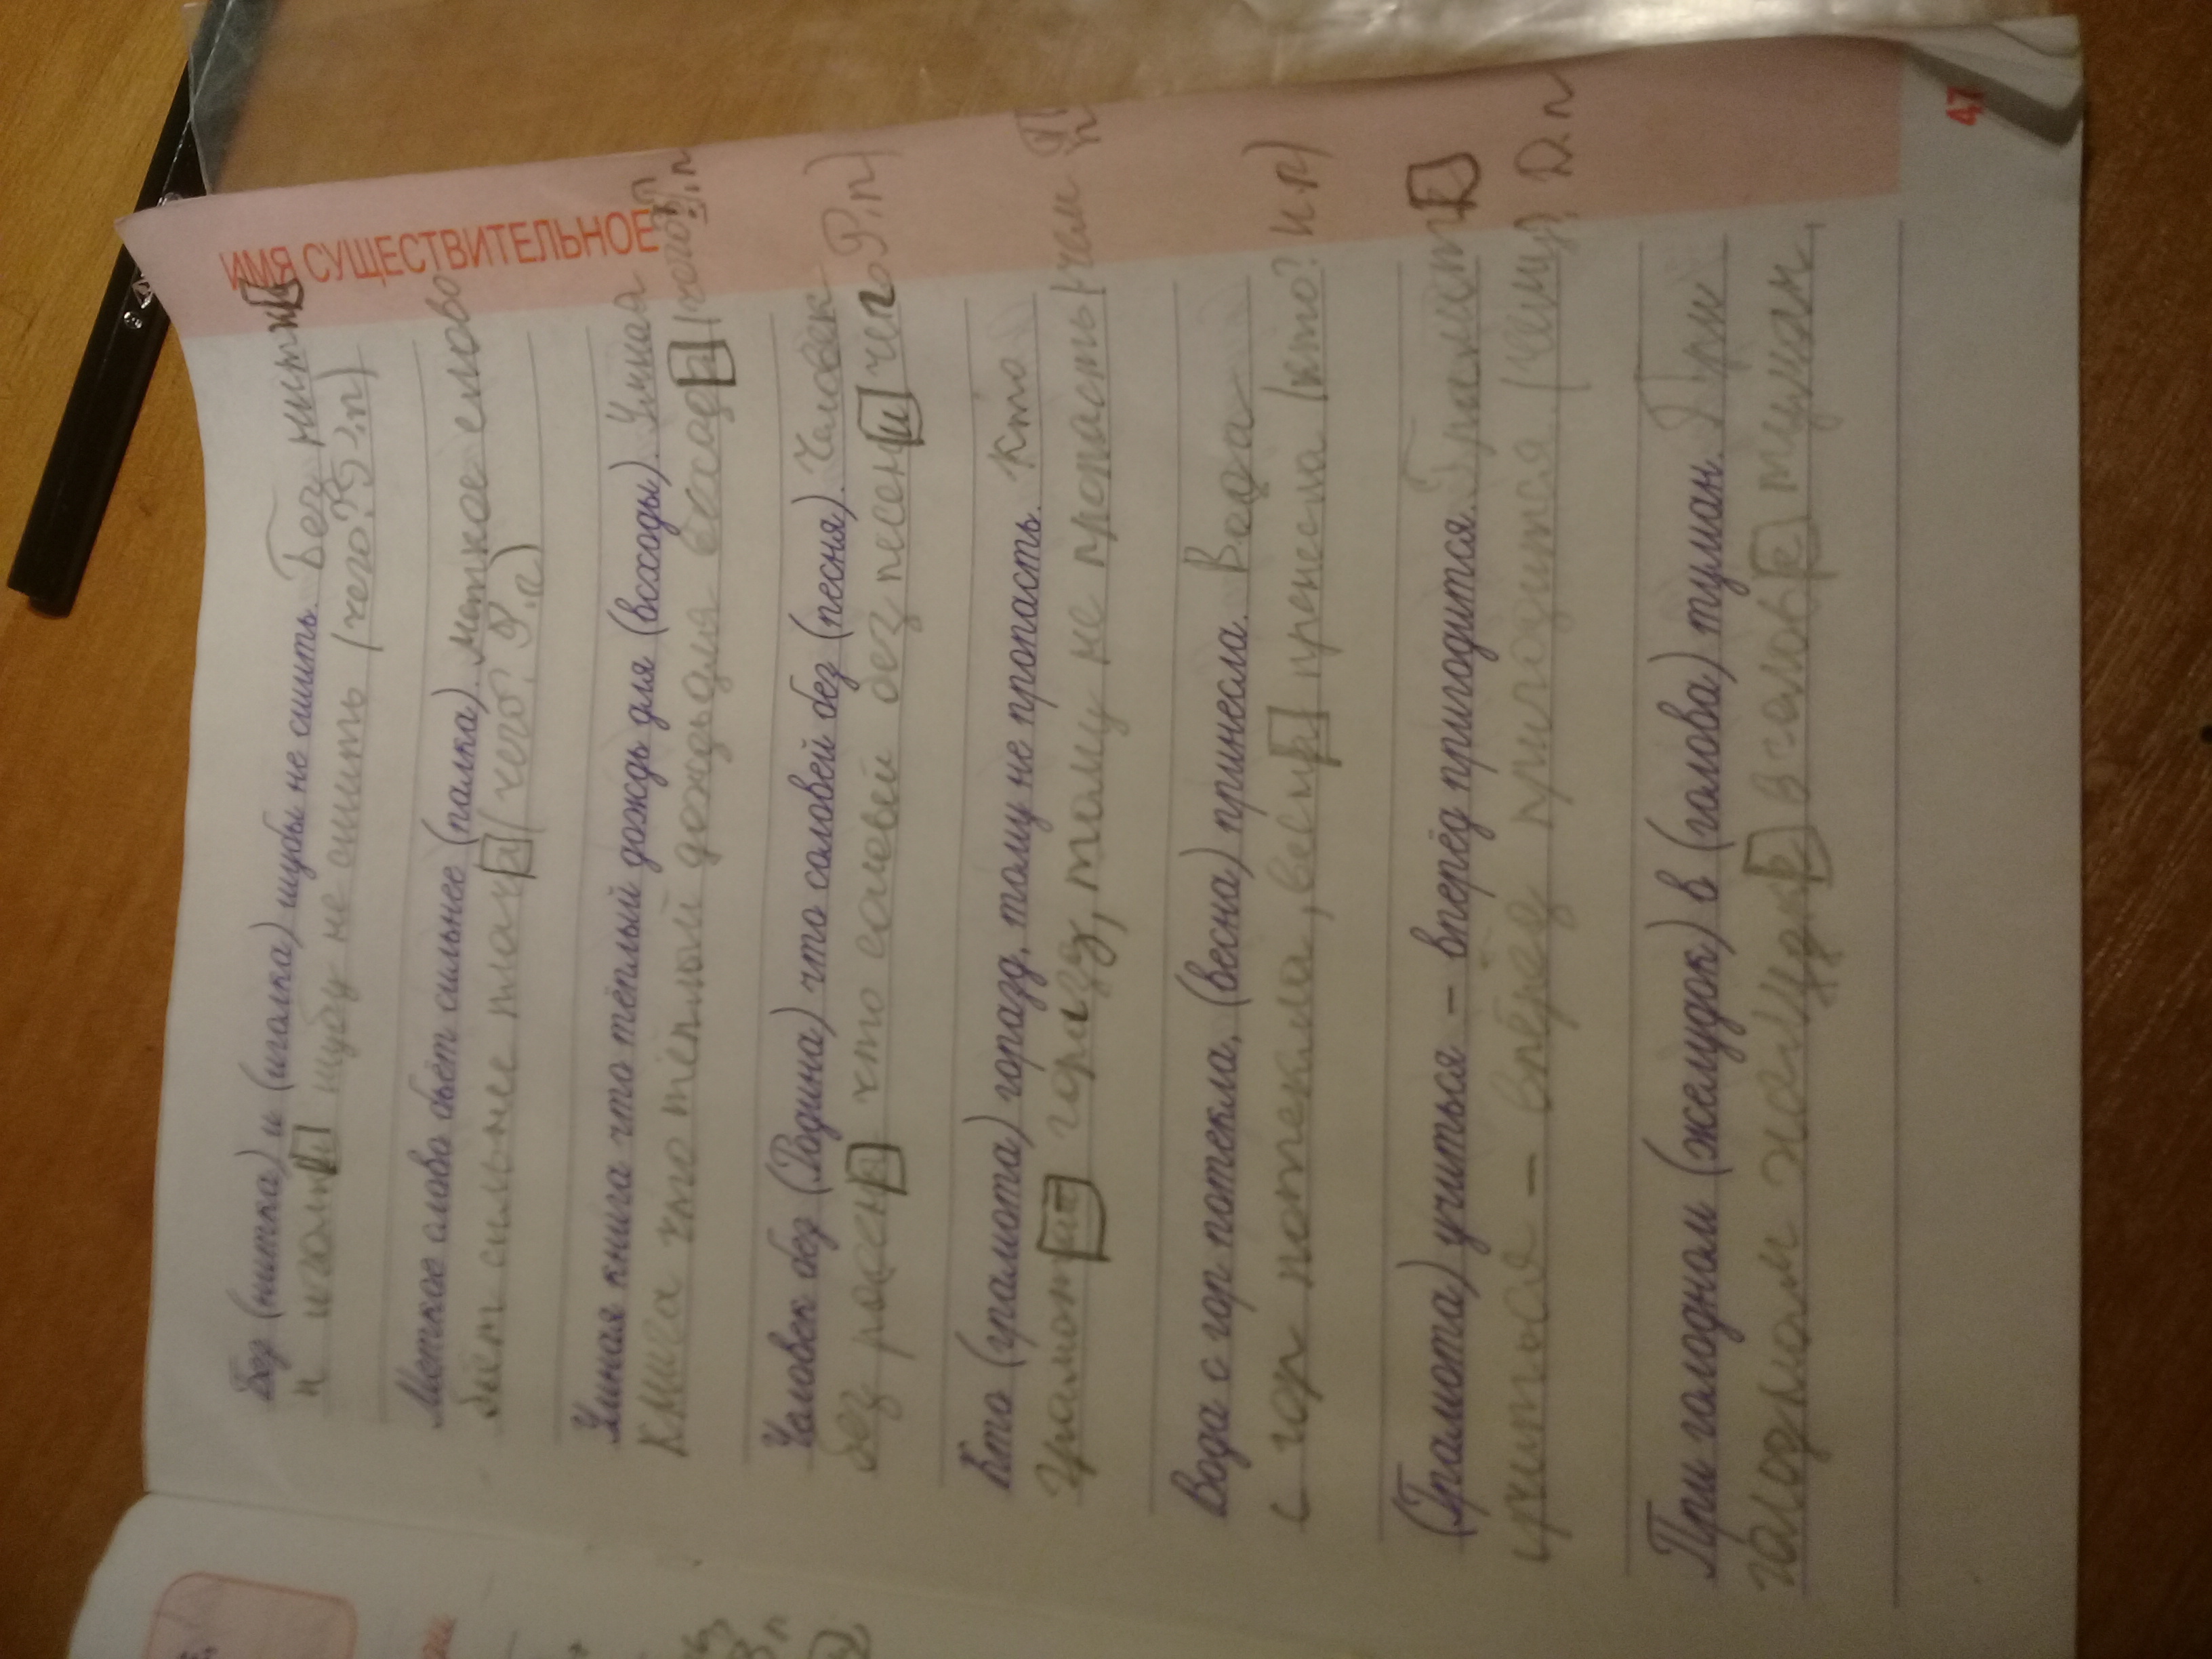 ИМЯ СУЩЕСТВИТЕЛЬНОЕ
Без (нитка) и (иголка) шубы не сшить. Без нитки
и иголки шубу не сшить (чего? Р.п)
Меткое слово бьёт сильнее (палка). Меткое слово
бьёт сильнее (чего? Р.п)
Умная книга что тёплый дождь для (всходы). Умная
книга что тёплый дождь для
Человек без (Родина) что соловей без (песня). Человек
без что соловей без песени чего Р.п)
Кто (грамота) горазд, тому не пропасть. Кто
горазд, тому не пропасть (чем
Вода с гор потекла, (весна) принесла. Вода
с гор потекла, принесла (кто? и.п)
(Грамота) учиться – вперёд пригодится.
учиться – вперёд пригодится (чему? Д.п
При голодном (желудок) в (голова) туман. При
в голове туман.
47